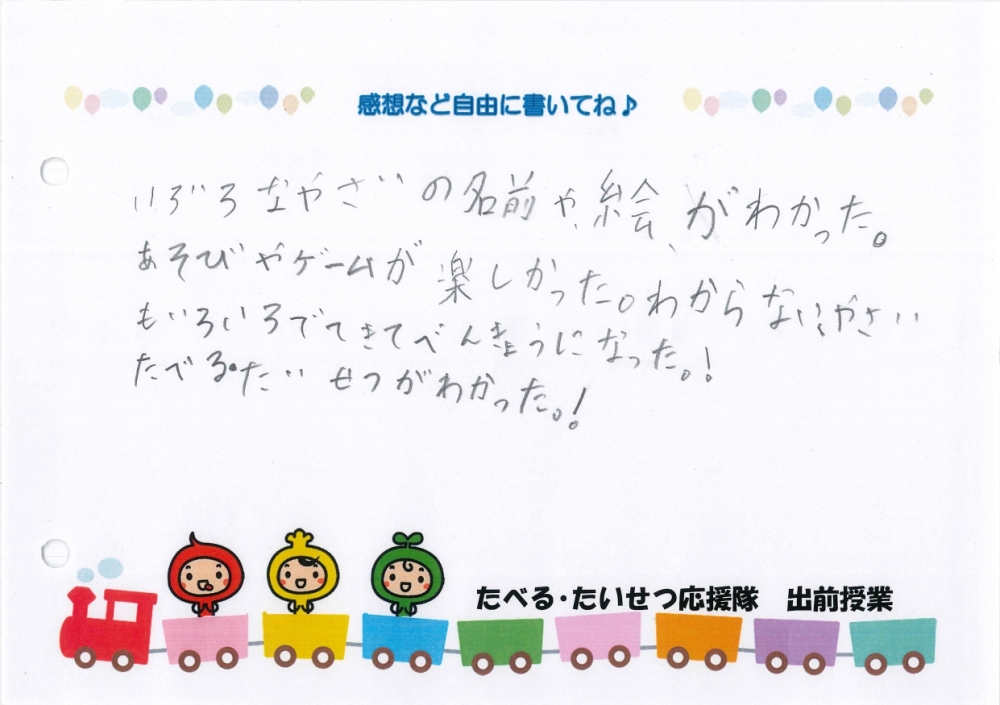 感想など自由に書いてね♪
いろいろなやさいの名前や、絵、がわかった。
あそびやゲームが楽しかった。わからないやさい
もいろいろでてきてべんきょうになった。!
たべる・たいせつがわかった。!
たべる・たいせつ応援隊 出前授業